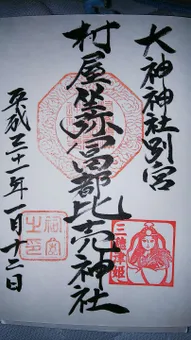 大神神社別宮
村屋坐弥冨都比売神社
三穂津姫
平成三十一年一月十二日